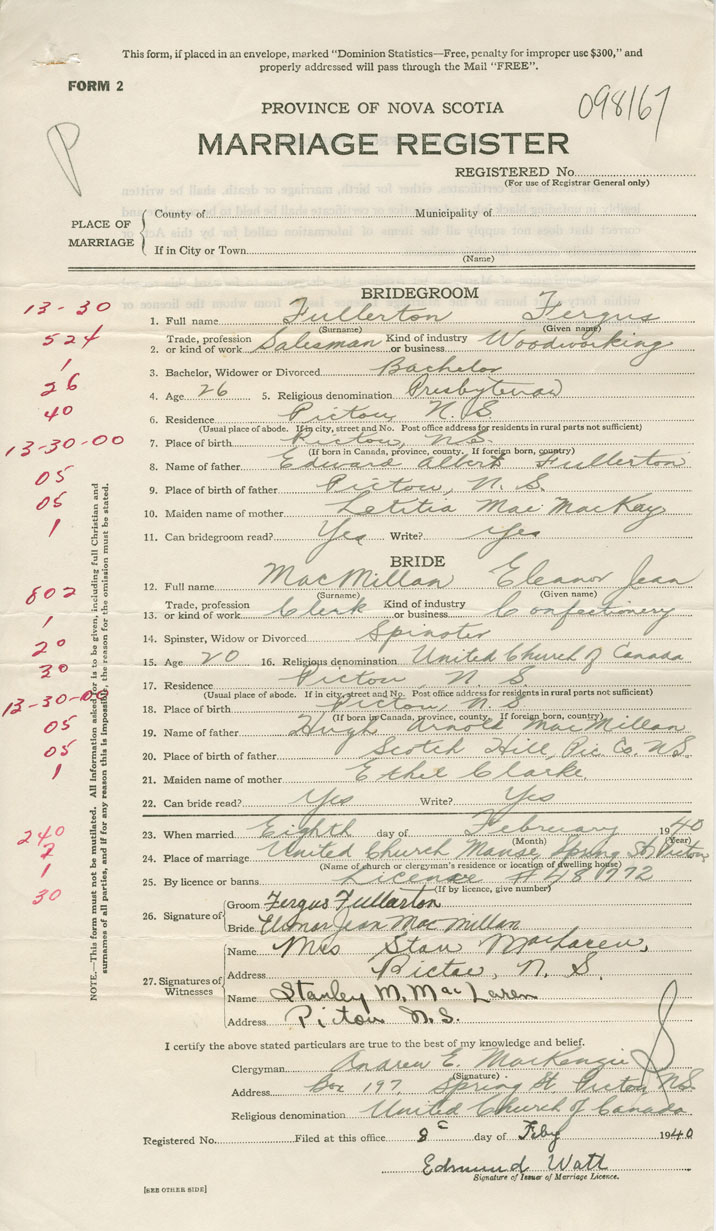 This form, if placed in an envelope, marked "Dominion Statistics—Free, penalty for improper use $300," and
properly addressed will pass through the Mail "FREE".
FORM 2
098167
PROVINCE OF NOVA SCOTIA
MARRIAGE REGISTER
P
REGISTERED No.
(For use of Registrar General only)
PLACE OF MARRIAGE
County of Municipality of
If in City or Town
(Name)
BRIDEGROOM
13-30
1. Full name Fullerton Fergus
(Surname) (Given name)
524
2. Trade, profession or kind of work Salesman Kind of industry or business Woodworking
1
3. Bachelor, Widower or Divorced Bachelor
26
4. Age 26 5. Religious denomination Presbyterian
40
6. Residence Pictou, N. S.
(Usual place of abode. If in city, street and No. Post office address for residents in rural parts not sufficient)
13-30-00
7. Place of birth Pictou, N.S.
(If born in Canada, province, county. If foreign born, country)
8. Name of father Edward Albert Fullerton
05
9. Place of birth of father Pictou, N. S.
05
10. Maiden name of mother Letitia Mae MacKay
1
11. Can bridegroom read? Yes Write? Yes
BRIDE
12. Full name MacMillan Eleanor Jean
(Surname) (Given name)
802
13. Trade, profession or kind of work Clerk Kind of industry or business Confectionery
1
14. Spinster, Widow or Divorced Spinster
20
15. Age 20 16. Religious denomination United Church of Canada
30
17. Residence Pictou, N. S
(Usual place of abode. If in city, street and No. Post office address for residents in rural parts not sufficient)
13-30-00
18. Place of birth Pictou, N.S
(If born in Canada, province, county. If foreign born, country)
05
19. Name of father Hugh Arnold MacMillan
05
20. Place of birth of father Scotch Hill, Pic. Co. N.S.
1
21. Maiden name of mother Ethel Clarke
22. Can bride read? Yes Write? Yes
240
23. When married Eighth day of February 1940
(Month) (Year)
2
24. Place of marriage United Church Manse, Spring St, Pictou
(Name of church or clergyman's residence or location of dwelling house)
1
25. By licence or banns License #481772
(If by licence, give number)
30
26. Signature of
Groom Fergus Fullarton
Bride Elenor Jean MacMillan
27. Signatures of Witnesses
Name Mrs Stan MacLaren,
Address Pictou, N. S.
Name Stanley M. MacLaren
Address Pictou N.S.
NOTE.—This form must not be mutilated. All information asked for is to be given, including full Christian and
surnames of all parties, and if for any reason this is impossible, the reason for the omission must be stated.
I certify the above stated particulars are true to the best of my knowledge and belief.
Clergyman Andrew E. MacKenzie
(Signature)
Address Box 197, Spring St. Pictou N.S.
Religious denomination United Church of Canada
Registered No. Filed at this office 8 day of Feby 1940
Edmund Watt
Signature of Issuer of Marriage Licence.
[SEE OTHER SIDE]